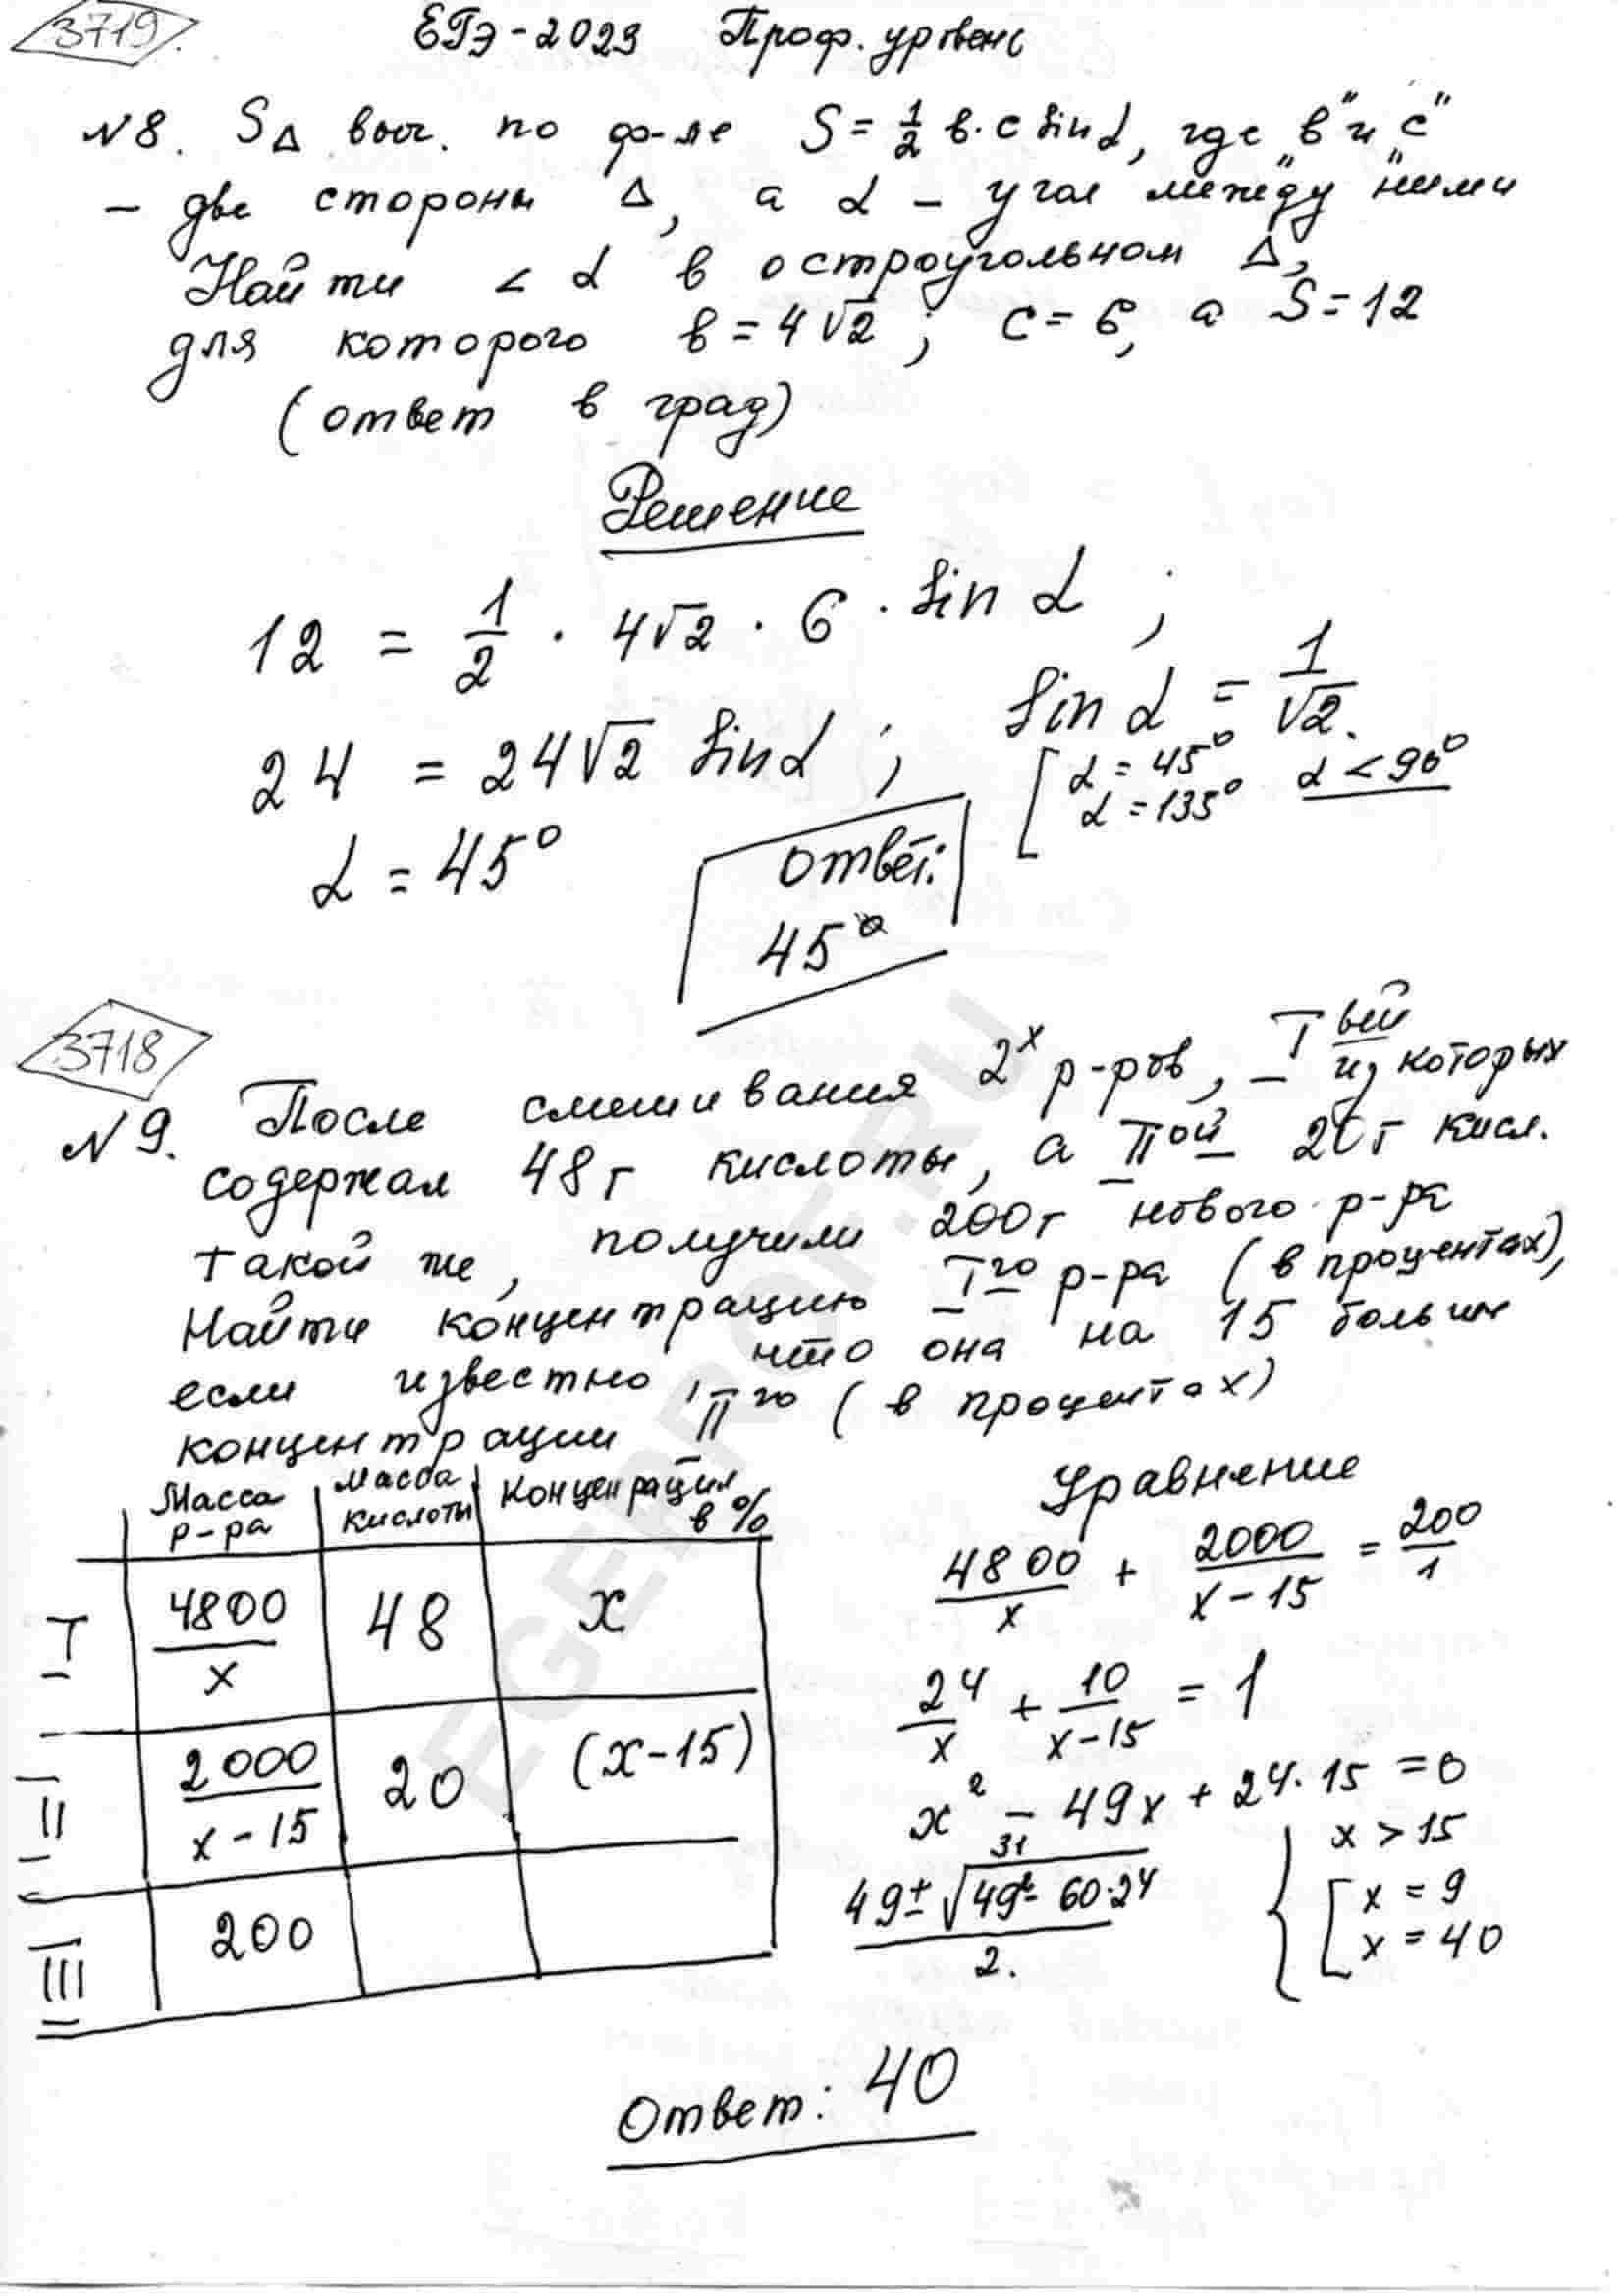 3719
ЕГЭ-2023 Проф. уровень
№8. S△ выч. по ф-ле S = 1/2 в·c sin α, где "в" и "с"
– две стороны △, а α – угол между ними
Найти < α в остроугольном △,
для которого в = 4√2 ; с = 6, а S = 12
(ответ в град)
Решение
12 = 1/2 · 4√2 · 6 · sin α ;
24 = 24√2 sin α ; sin α = 1/√2.
[ α = 45° α = 135° α < 90°
α = 45°
Ответ:
45°
3718
№9. После смешивания 2х р-ров, Iвый из которых
содержал 48г кислоты, а IIой 20г кисл.
такой же, получили 200г нового р-ра
Найти концентрацию Iго р-ра (в процентах),
если известно, что она на 15 больше
концентрации IIго (в процентах)
Масса р-ра Масса кислоты Концентрация в %
I 4800/x 48 x
II 2000/x-15 20 (x-15)
III 200
Уравнение
4800/x + 2000/x-15 = 200/1
24/x + 10/x-15 = 1
x² – 49x + 24·15 = 0
31
49±√49²-60·24 / 2.
{ x > 15 [ x = 9 x = 40
Ответ: 40
EGEPROF.RU